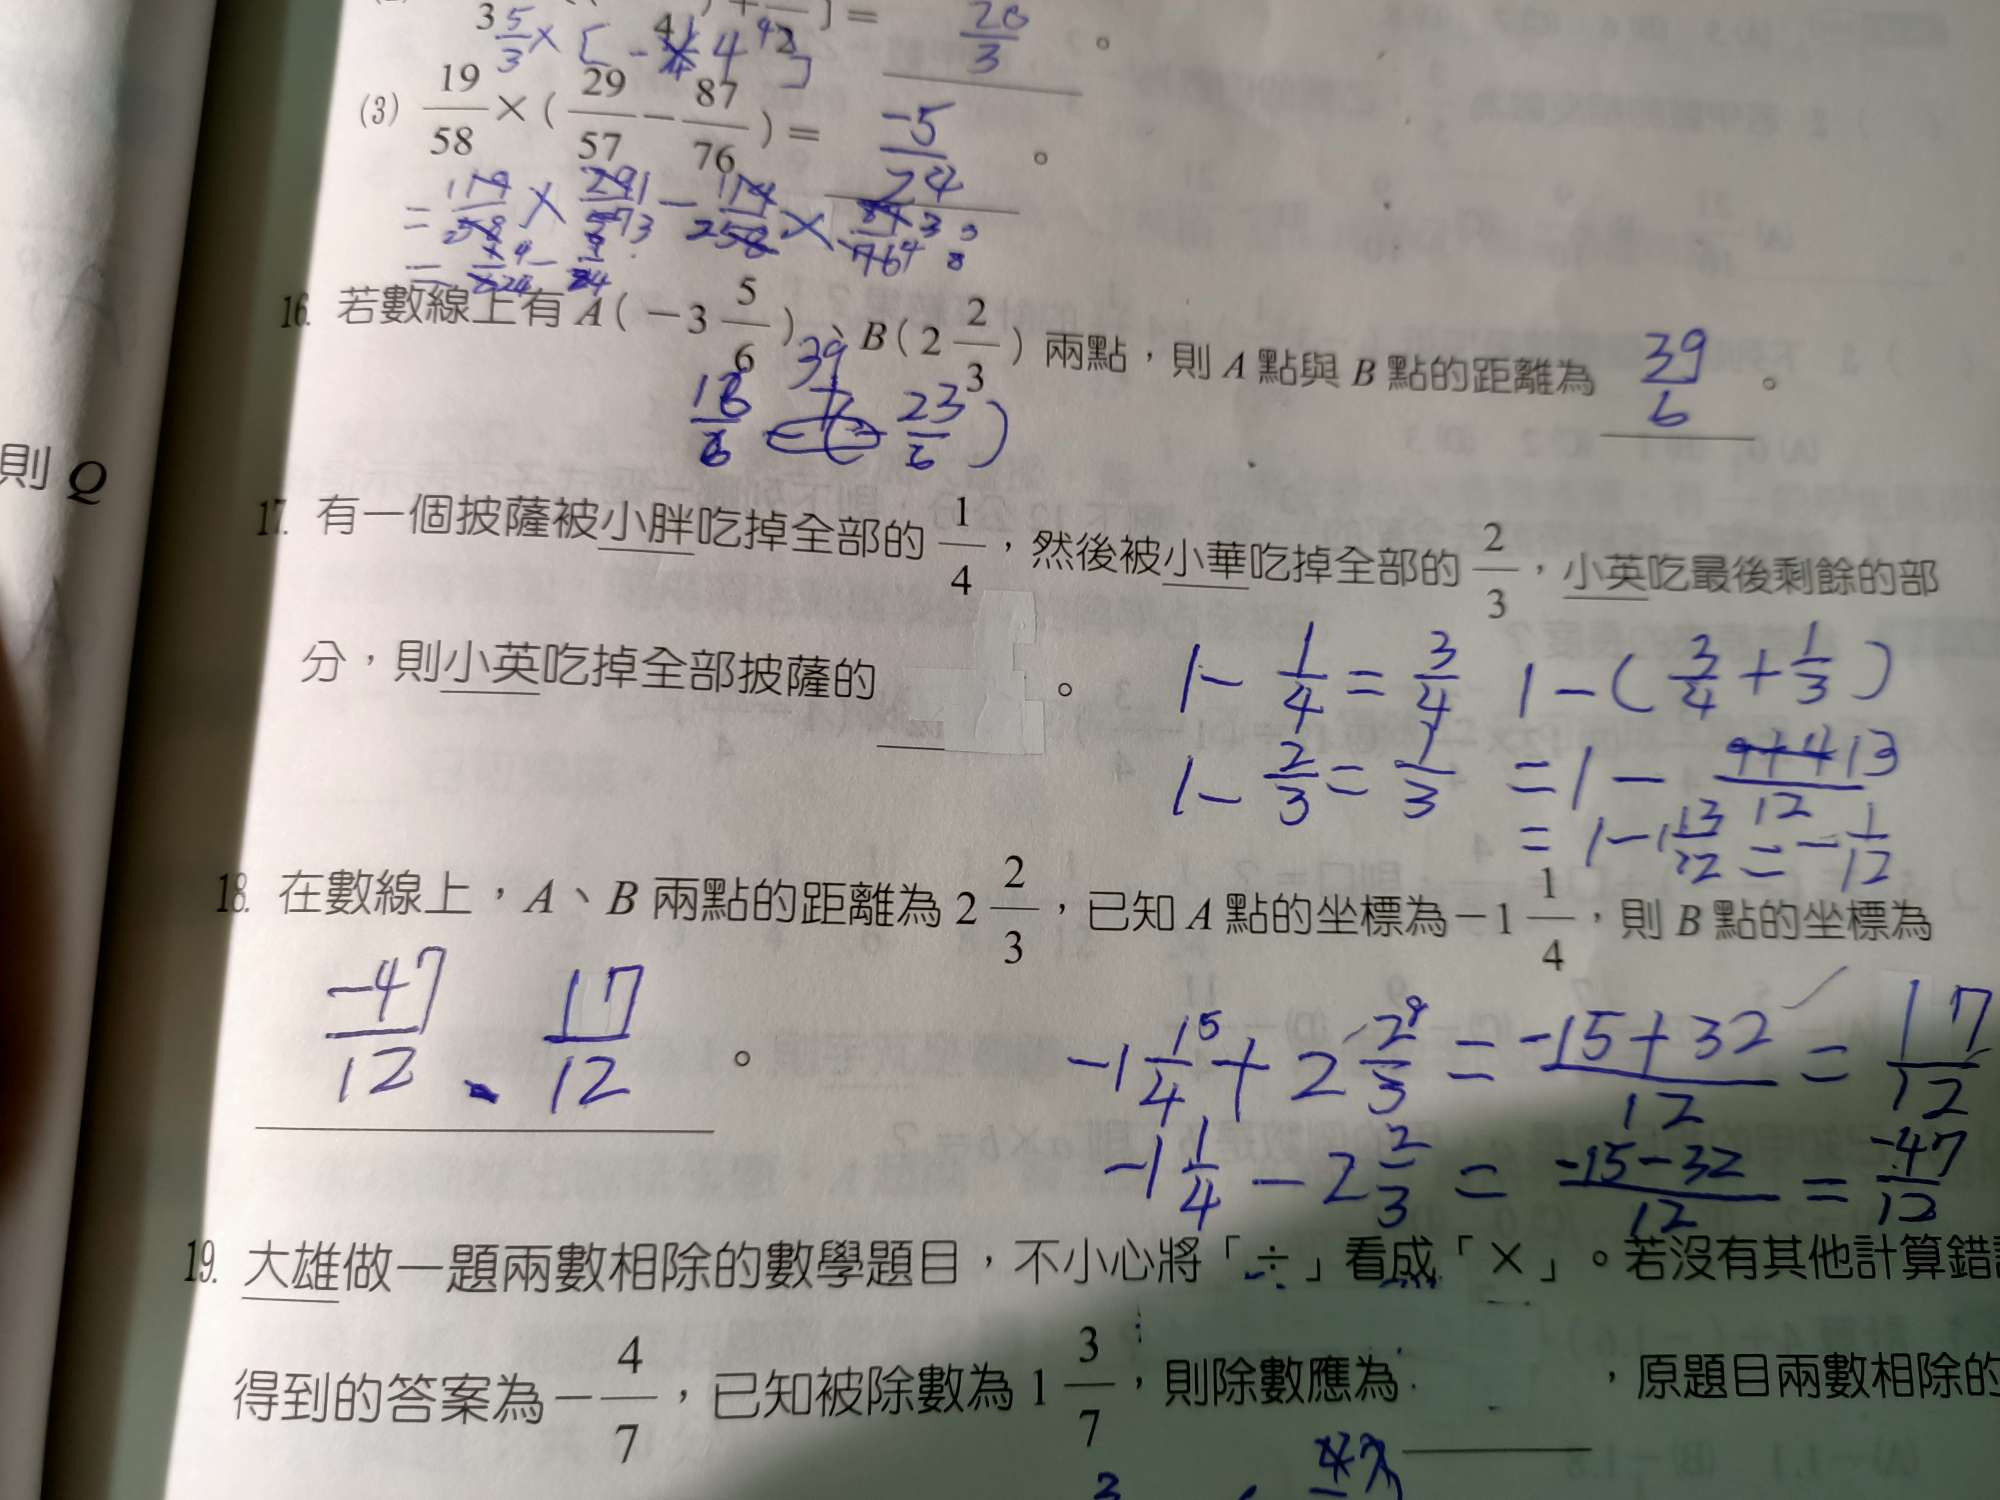 = 20/3 。
3 5/3 × [ - 4
(3) 19/58 × ( 29/57 - 87/76 ) = -5/24 。
16. 若數線上有 A ( -3 5/6 ) 、 B ( 2 2/3 ) 兩點，則 A 點與 B 點的距離為 39/6 。
則 Q
17. 有一個披薩被小胖吃掉全部的 1/4 ，然後被小華吃掉全部的 2/3 ，小英吃最後剩餘的部
分，則小英吃掉全部披薩的 。
1 - 1/4 = 3/4 1 - ( 3/4 + 1/3 )
1 - 2/3 = 1/3 = 1 - 13/12
= 1 - 1 13/12 = - 1/12
18. 在數線上，A、B 兩點的距離為 2 2/3 ，已知 A 點的坐標為 -1 1/4 ，則 B 點的坐標為
-47/12 、 17/12 。
-1 1/4 + 2 2/3 = -15+32/12 = 17/12
-1 1/4 - 2 2/3 = -15-32/12 = -47/12
19. 大雄做一題兩數相除的數學題目，不小心將「÷」看成「×」。若沒有其他計算錯
得到的答案為 -4/7 ，已知被除數為 1 3/7 ，則除數應為 ，原題目兩數相除的